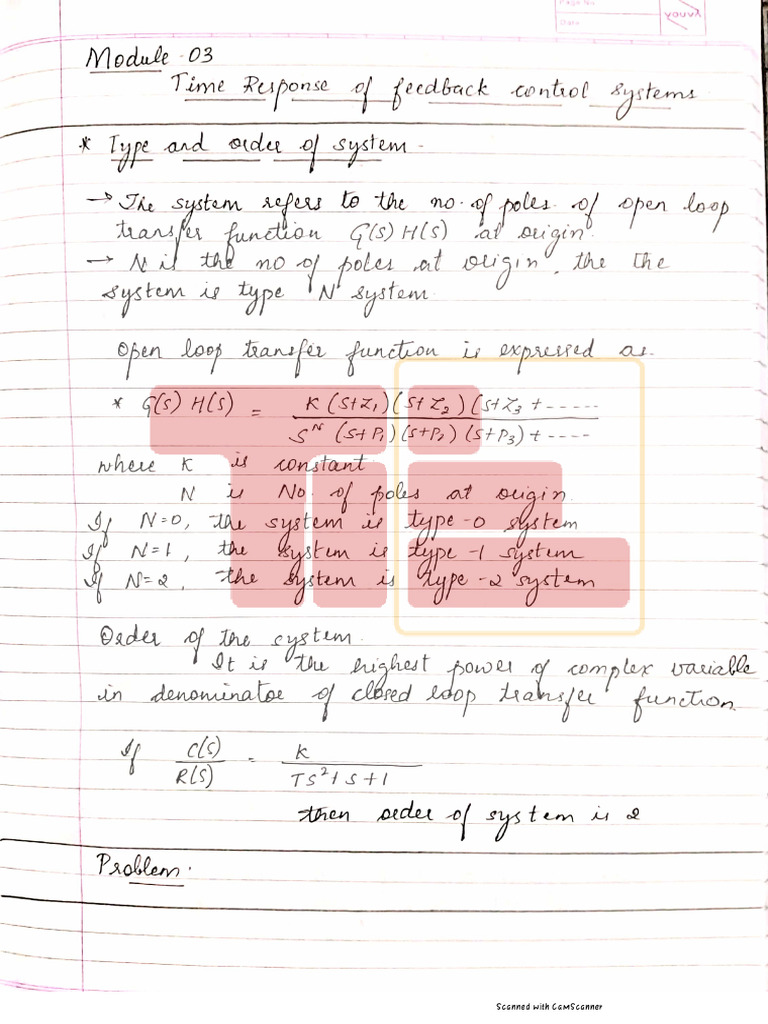 Page No
Date
YOUVA
Module-03
Time Response of feedback control systems
* Type and order of system.
→ The system refers to the no. of poles of open loop
transfer function G(S) H(S) at origin.
→ N is the no of poles at origin, the the
system is type 'N' system.
Open loop transfer function is expressed as.
* G(S) H(S) = K (S+Z1) (S+Z2) (S+Z3 + -----
S^N (S+P1) (S+P2) (S+P3) + ----
where K is constant
N is No. of poles at origin.
If N=0, the system is type-0 system
If N=1, the system is type-1 system
If N=2, the system is type-2 system
Order of the system.
It is the highest power of complex variable
in denominator of closed loop transfer function.
If C(S)/R(S) = K
TS²+S+1
then order of system is 2
Problem.
Scanned with CamScanner